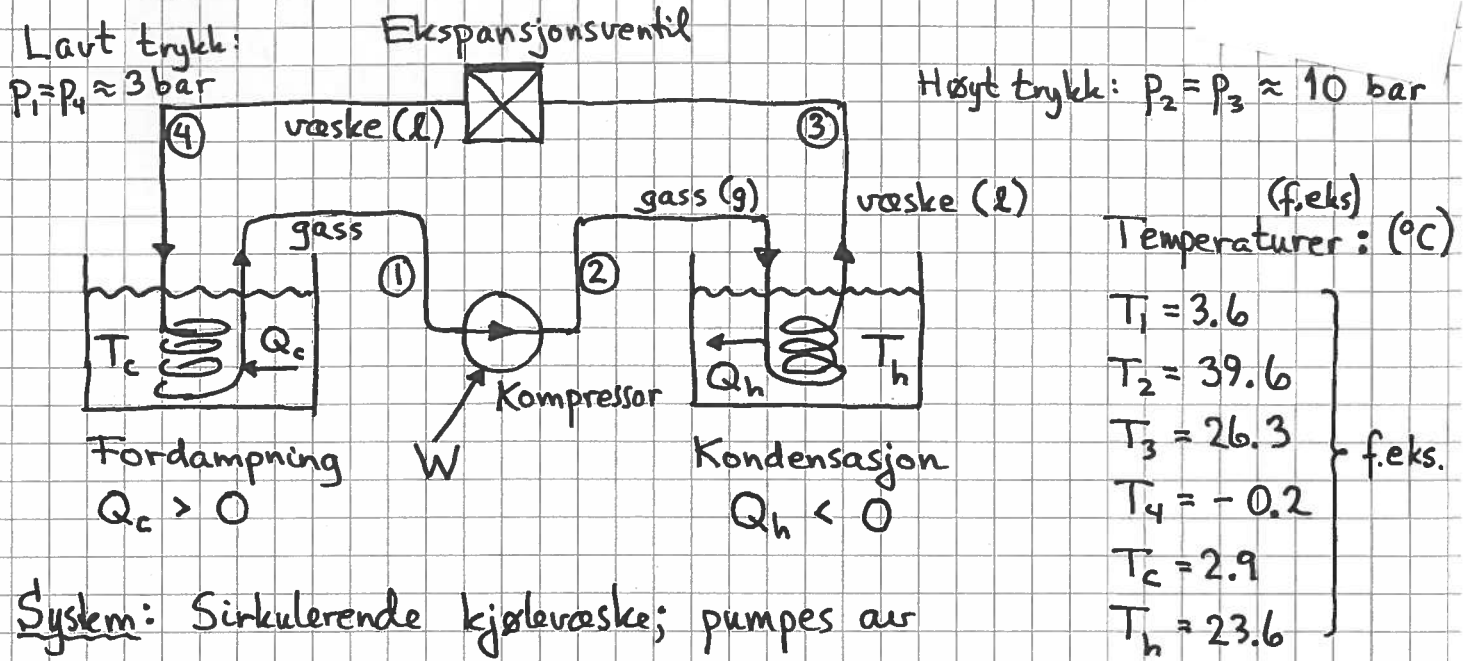 Lavt trykk:
p₁=p₄ ≈ 3 bar
Ekspansjonsventil
Høyt trykk: p₂ = p₃ ≈ 10 bar
④
væske (l)
③
gass
gass (g)
væske (l)
①
②
T_c
Q_c
Kompressor
W
Q_h
T_h
Fordampning
Q_c > 0
Kondensasjon
Q_h < 0
(f.eks)
Temperaturer: (°C)
T₁ = 3.6
T₂ = 39.6
T₃ = 26.3
T₄ = -0.2
T_c = 2.9
T_h = 23.6
f.eks.
System: Sirkulerende kjølevæske; pumpes av